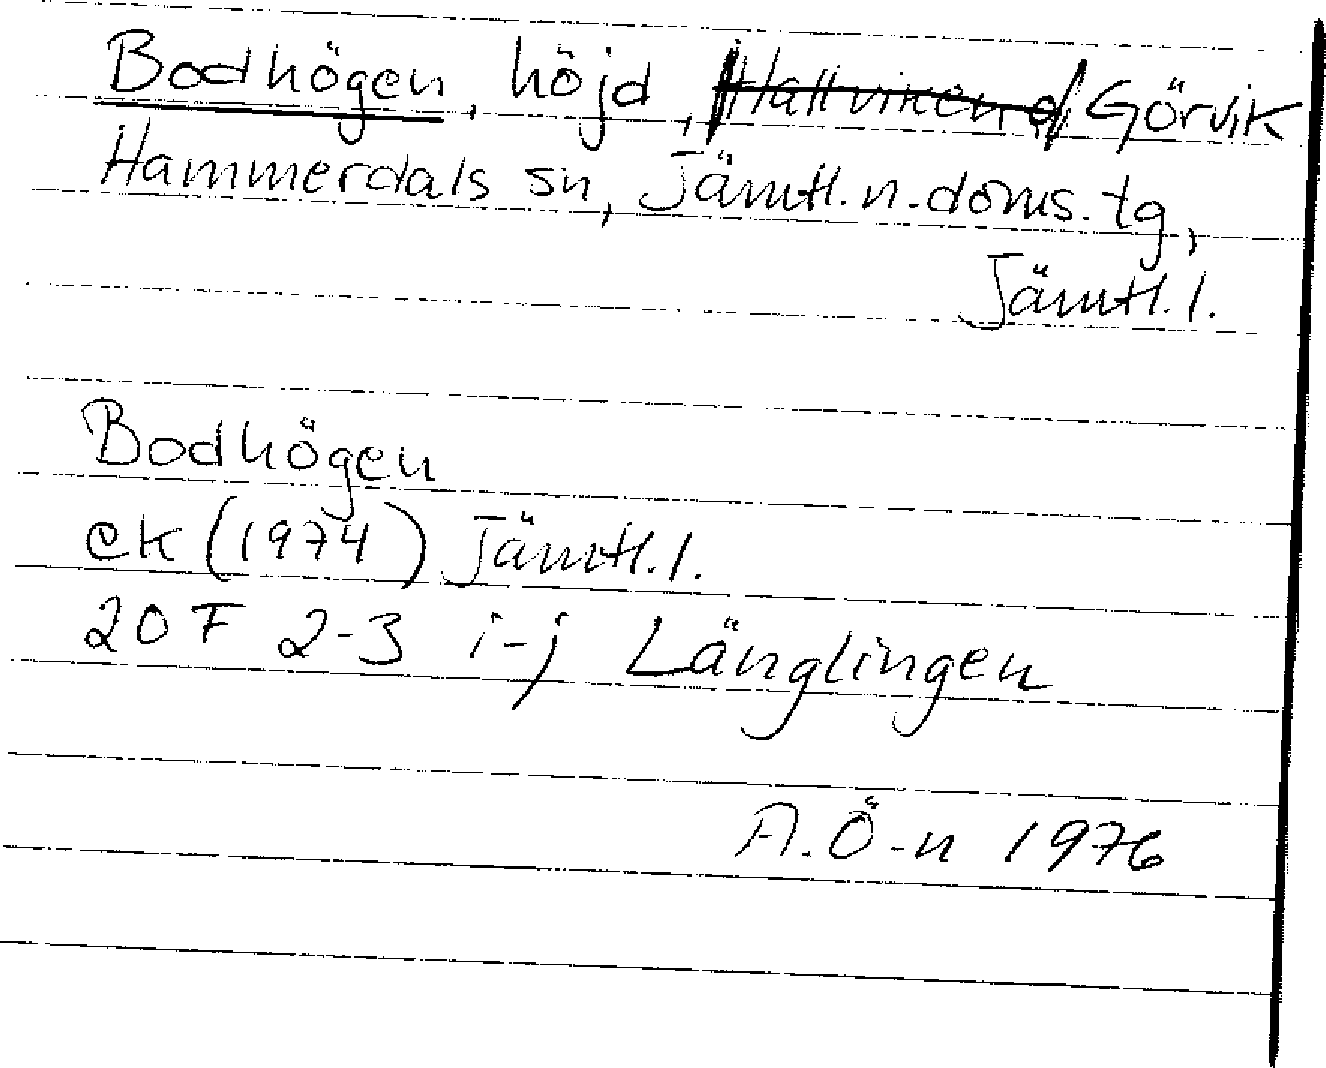 Bodhögen, höjd, Hallviken o Görvik
Hammerdals sn, Jämtl. n. doms. tg,
Jämtl. l.
Bodhögen
ek (1974) Jämtl. l.
20 F 2-3 i-j Länglingen
A. Ö-n 1976